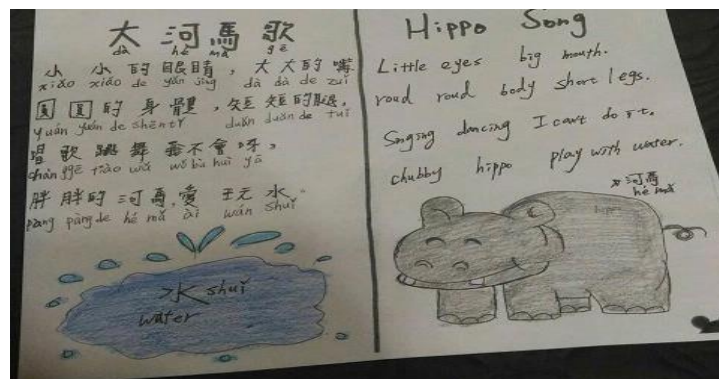 大河馬歌
dà hé mǎ gē
小小的眼睛，大大的嘴
xiǎo xiǎo de yǎn jīng dà dà de zuǐ
圓圓的身體，短短的腿，
yuán yuán de shēn tǐ duǎn duǎn de tuǐ
唱歌跳舞我不會呀，
chàng gē tiào wǔ wǒ bù huì yā
胖胖的河馬，愛玩水。
pàng pàng de hé mǎ ài wán shuǐ
水 shuǐ
water
Hippo Song
Little eyes big mouth.
roud roud body short legs.
Singing dancing I can't do it.
chubby hippo play with water.
大河馬
hé mǎ